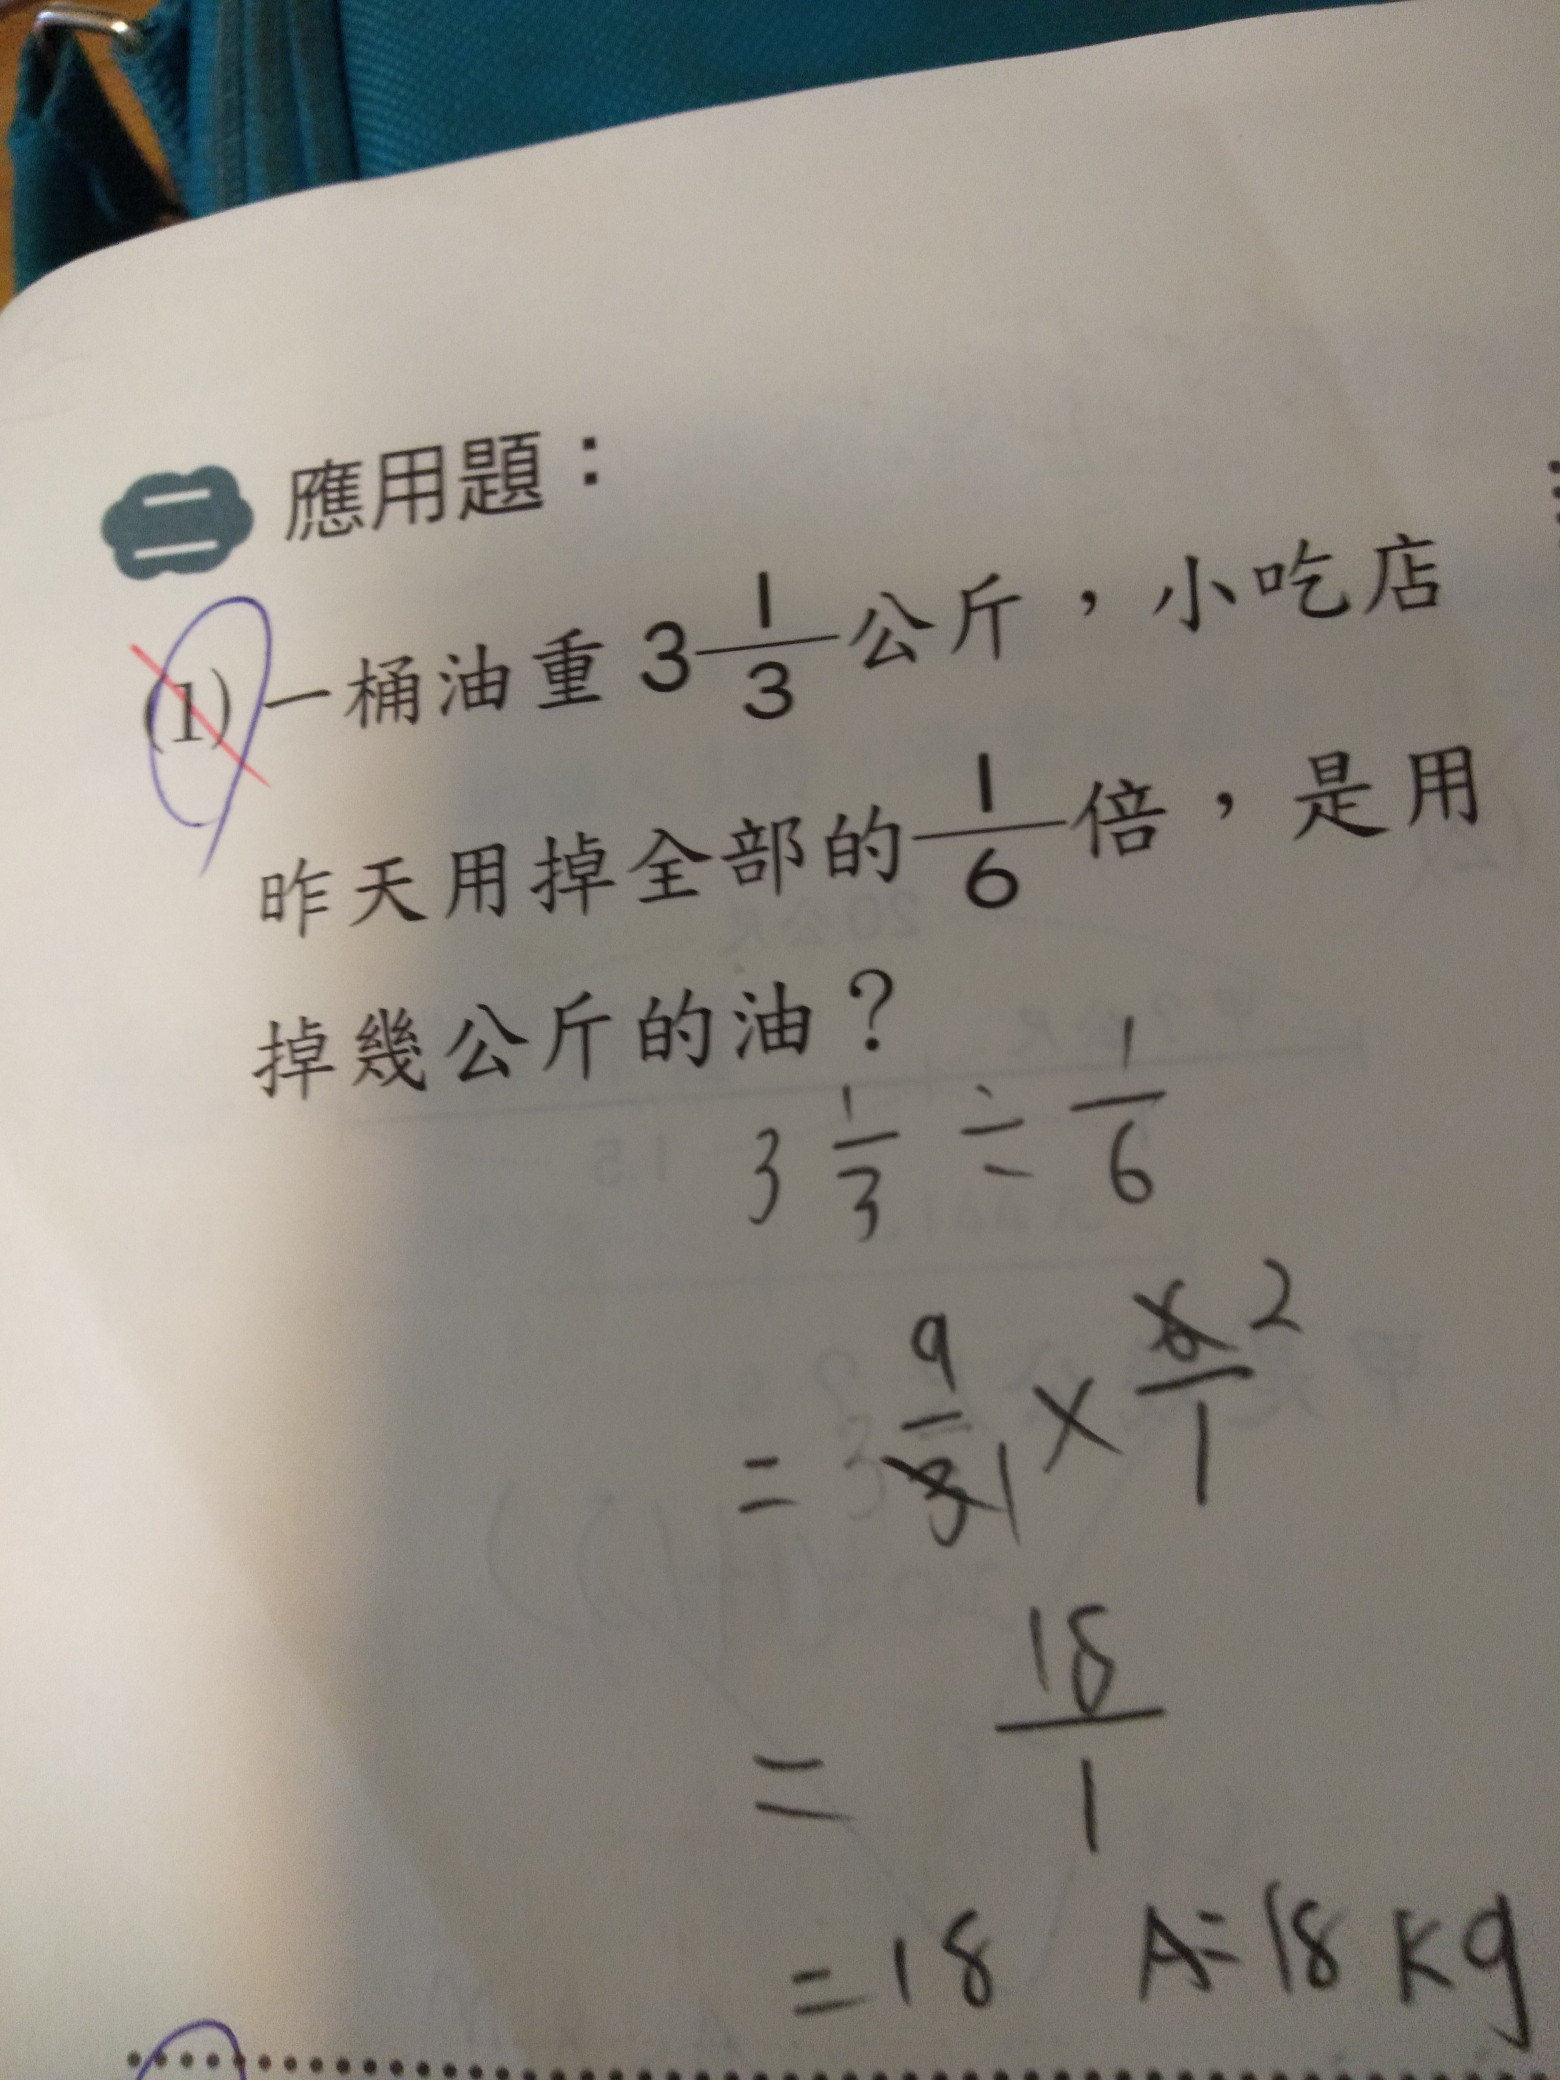 二 應用題：
(1) 一桶油重 3 1/3 公斤，小吃店
昨天用掉全部的 1/6 倍，是用
掉幾公斤的油？
3 1/3 ÷ 1/6
= 9/3 1 × 6/1 2
= 18/1
= 18 A=18 kg